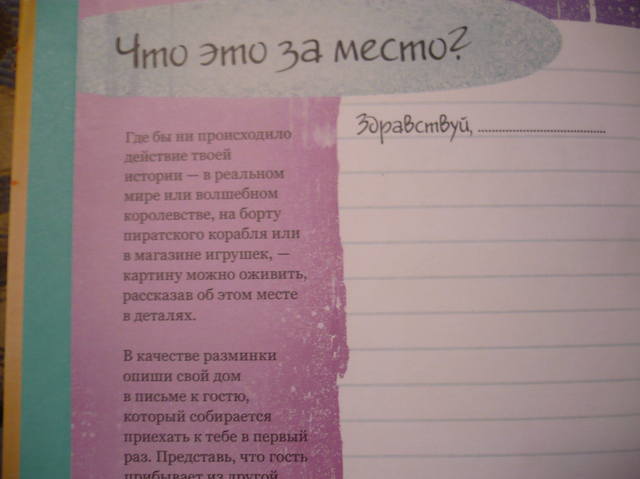 Что это за место?
Где бы ни происходило
действие твоей
истории — в реальном
мире или волшебном
королевстве, на борту
пиратского корабля или
в магазине игрушек, —
картину можно оживить,
рассказав об этом месте
в деталях.
В качестве разминки
опиши свой дом
в письме к гостю,
который собирается
приехать к тебе в первый
раз. Представь, что гость
прибывает из другой
Здравствуй, ................................